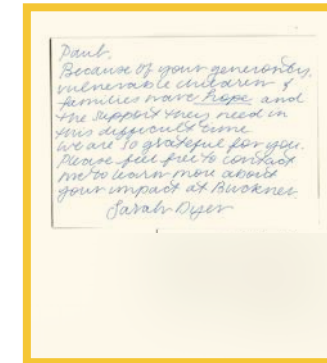 Paul,
Because of your generosity,
vulnerable children &
families have hope and
the support they need in
this difficult time.
We are so grateful for you.
Please feel free to contact
me to learn more about
your impact at Buckner.
Sarah Dyer